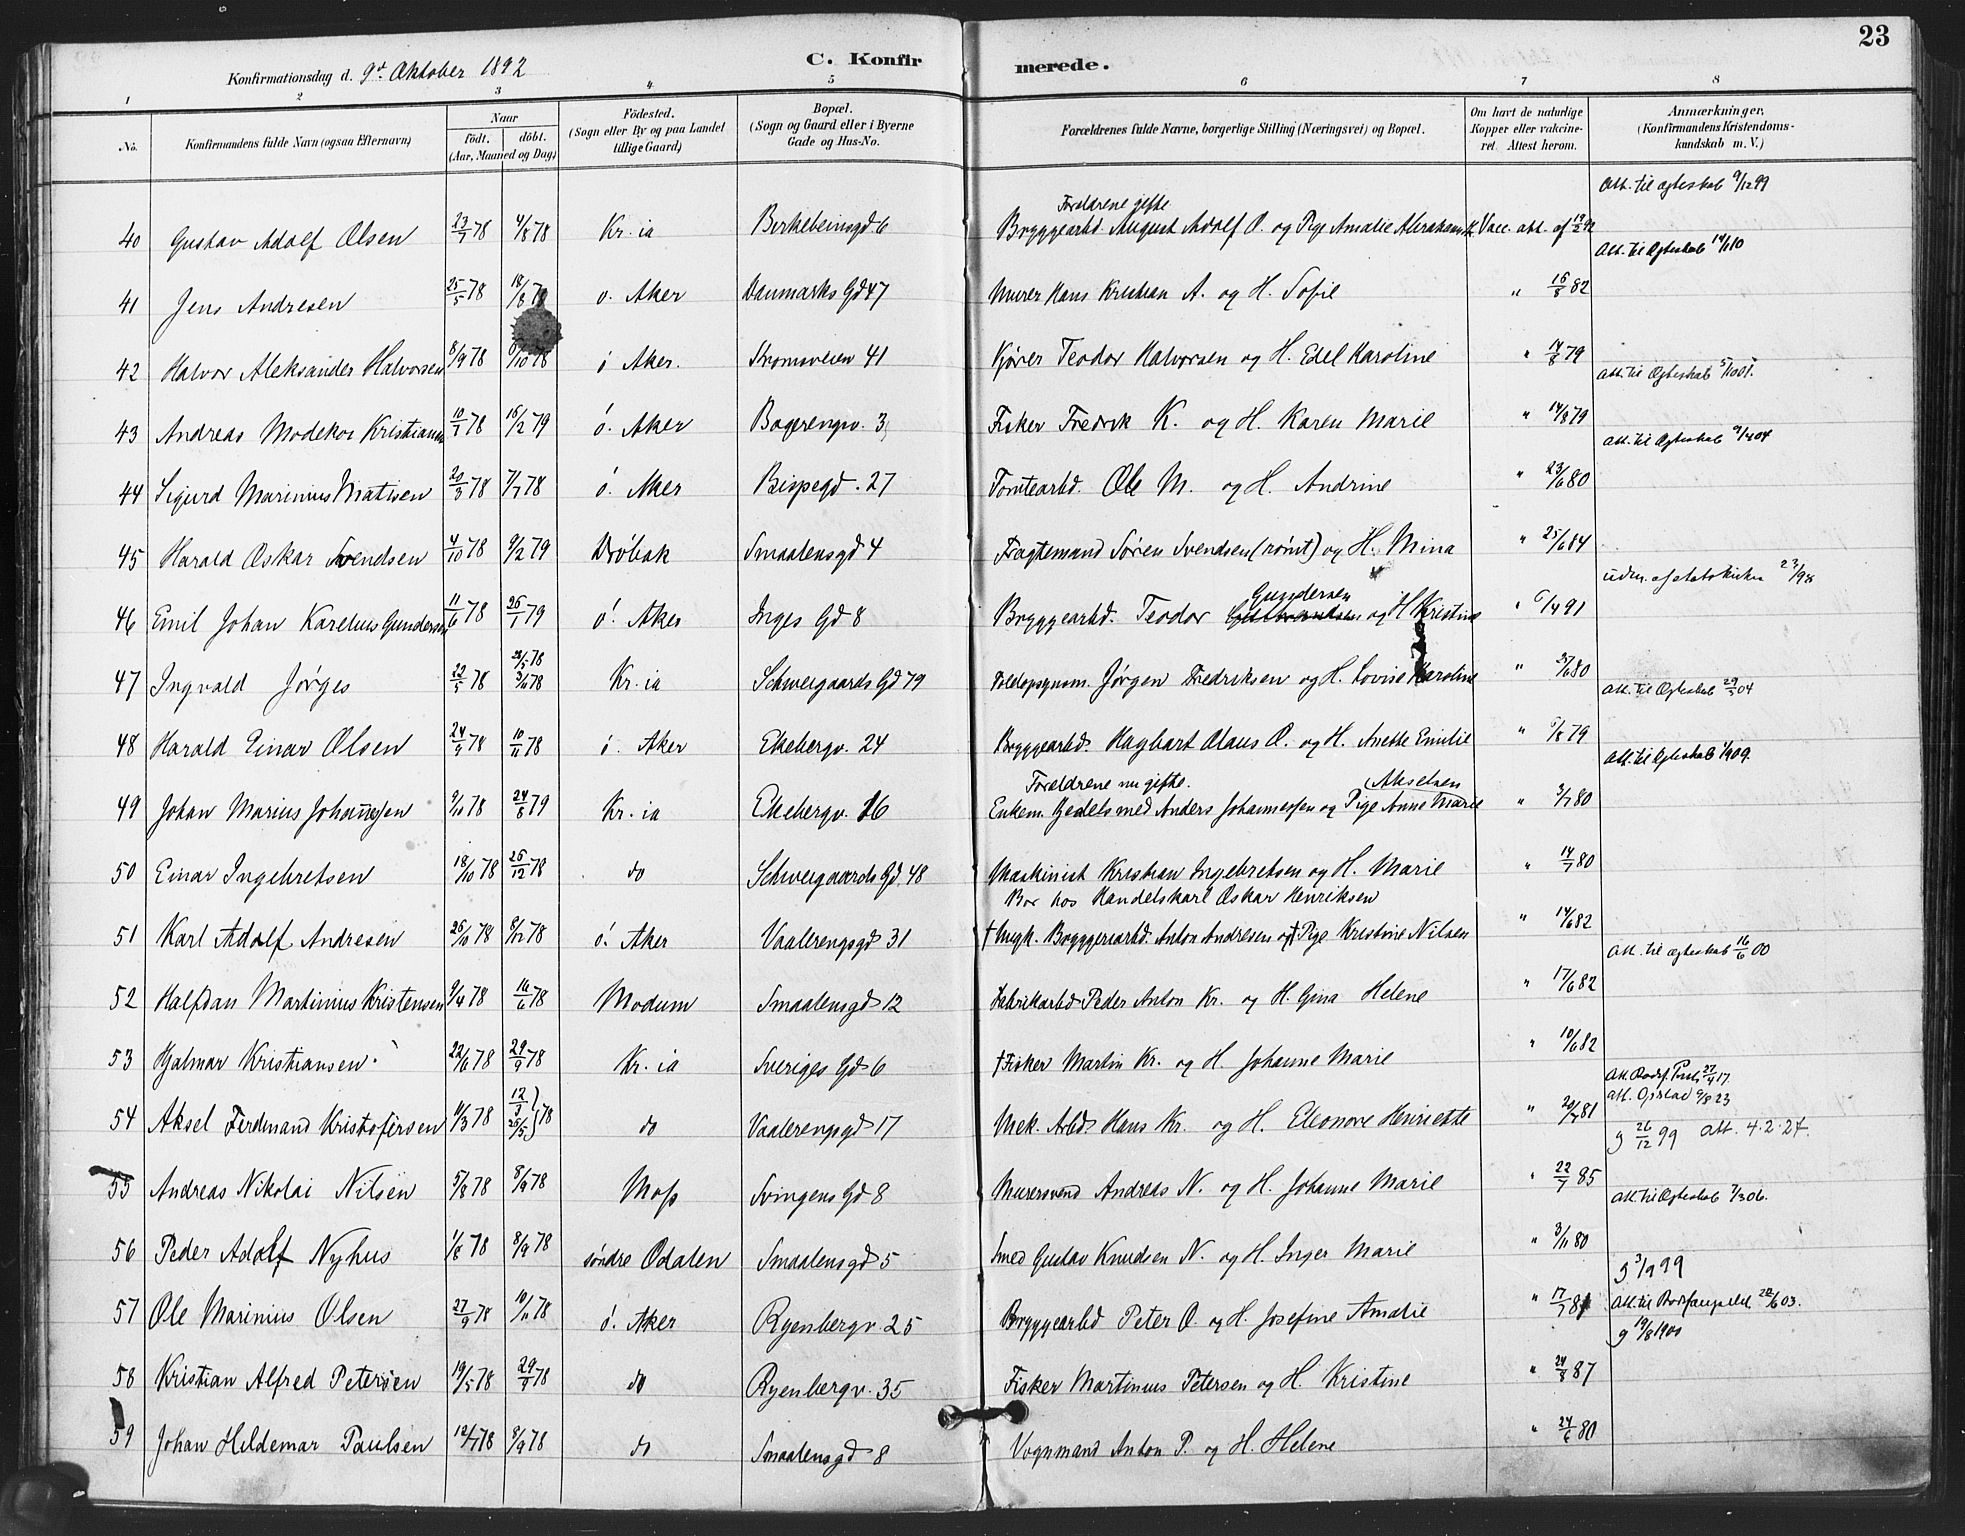 23
Konfirmationsdag d. 9de Oktober 1892 C. Konfirmerede.
1 2 3 4 5 6 7 8
No. Konfirmandens fulde Navn (ogsaa Efternavn) Naar födt. döbt. (Aar, Maaned og Dag) Födested. (Sogn eller By og paa Landet tillige Gaard) Bopæl. (Sogn og Gaard eller i Byerne Gade og Hus-No. Forældrenes fulde Navne, borgerlige Stilling (Næringsvei) og Bopæl. Om havt de naturlige Kopper eller vakcineret. Attest herom. Anmærkninger. (Konfirmandens Kristendomskundskab m. V.)
Att. til Ægteskab 9/12 99
Forældrene gifte
40 Gustav Adolf Olsen 23/7 78 4/8 78 Kr.ia Birkebeinsgd 6 Bryggearbd. August Adolf O. og Pige Amalie Vacc. att. af
Att. til Ægteskab
41 Jens Andresen 25/5 78 18/8 78 ö. Aker Danmarks Gd 47 Murer Hans Kristian A. og H. Sofie " 16/8 82
42 Halvor Aleksander Halvorsen 8/9 78 /10 78 ö Aker. Stromsveien 41 Kjörer Teodor Halvorsen og H. Edel Karoline " 14/8 79
Att. til Ægteskab
43 Andreas Kristiansen 10/7 78 16/2 79 ö. Aker Bogerengv. 3 Fisker Fredrik K. og H. Karen Marie " 14/8 79
Att. til Ægteskab 9/4 04
44 Sigurd Marinius Matisen 20/3 78 7/7 78 ö. Aker Bispegd. 27 Tomtearbd. Ole M. og H. Andrine " 23/6 80
45 Harald Oskar Svendsen 4/10 78 9/2 79 Dröbak Smaalensgd 4 Fragtemand Sören Svendsen (römt) og H. Mina " 25/6 84
udm. af statskirken 23/ 98
Gundersen
46 Emil Johan Karelius Gundersen 11/6 78 26/1 79 ö. Aker Inges Gd 8 Bryggearbd. Teodor og H. Kristine " 6/4 91
28/5 78
47 Ingvald Jörges 22/5 78 3/6 78 Kr.ia Schweigaards Gd 79 Toldopsynsm. Jörgen Fredriksen og H. Lovise Karoline " 25/6 80
Att. til Ægteskab 29/5 04
48 Harald Einar Olsen 24/9 78 10/11 78 ö. Aker Ekebergv. 24 Bryggearbd. Hagbart Olaus O. og H. Anette Emilie " /8 79
Att. til Ægteskab
Forældrene nu gifte. Akselsen
49 Johan Marius Johannesen 9/10 78 24/8 79 Kr.ia Ekebergv. 16 Enkem. Anders Johannessen og Pige Anne Marie " 3/7 80
50 Einar Ingebretsen 18/10 78 26/12 78 do Schweigaards Gd. 48 Maskinist Kristian Ingebretsen og H. Marie " 14/7 80
Bor hos Handelskarl Oskar Henriksen
51 Karl Adolf Andresen 26/10 78 8/12 78 ö. Aker Vaalerengsgd 31 † Ungk. Bryggeriarbd. Anton Andresen og † Pige Kristine Nilsen " 14/6 82
Att. til Ægteskab 16/6 00
52 Halfdan Martinius Kristensen 9/4 78 16/6 78 Modum Smaalensgd 12 Fabrikarbd. Peder Anton Kr. og H. Gina Helene " 17/6 82
53 Hjalmar Kristiansen 22/6 78 29/9 78 Kr.ia Sveriges Gd 6 † Fisker Martin Kr. og H. Johanne Marie " 10/6 82
12/3 78
54 Aksel Ferdinand Kristofersen 11/3 78 26/5 do Vaalerengsgd 17 Mek. Arbd. Hans Kr. og H. Eleonore Henriette " 20/7 81
g 26/12 99 Att. 4.2.27.
55 Andreas Nikolai Nilsen 5/8 78 8/9 78 Moss Svingens Gd 8 Murersvend Andreas N. og H. Johanne Marie " 22/7 85
Att. til Ægteskab 7/3 06.
56 Peder Adolf Nyhus 1/8 78 8/9 78 söndre Odalen Smaalensgd 5 Smed Gustav Knudsen N. og H. Inger Marie " 3/11 80
g 3/9 99
57 Ole Marinius Olsen 27/9 78 10/11 78 ö. Aker Ryenbergv. 25 Bryggearbd Peter O. og H. Josefine Amalie " 17/7 81
g 19/8 1900
58 Kristian Alfred Petersen 19/5 78 29/9 78 do Ryenbergv. 35 Fisker Martinius Petersen og H. Kristine " 24/8 87
59 Johan Hildemar Paulsen 12/7 78 8/9 78 do Smaalensgd 8 Vognmand Anton P. og H. Helene " 24/6 80